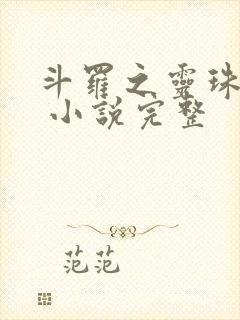 斗羅之靈珠
小說完整
范范